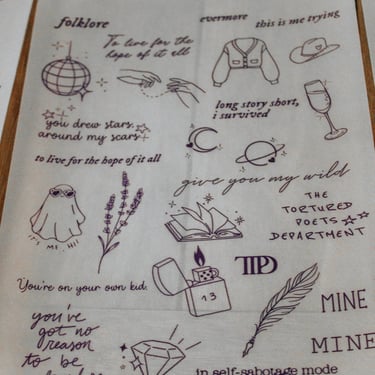 folklore
evermore
this is me trying
To live for the
hope of it all
long story short,
i survived
you drew stars
around my scars
to live for the hope of it all
give you my wild
THE
TORTURED
POETS
DEPARTMENT
IT'S ME, HI!
TTPD
13
You're on your own kid.
MINE
MINE
you've
got no
reason
to be
in self-sabotage mode